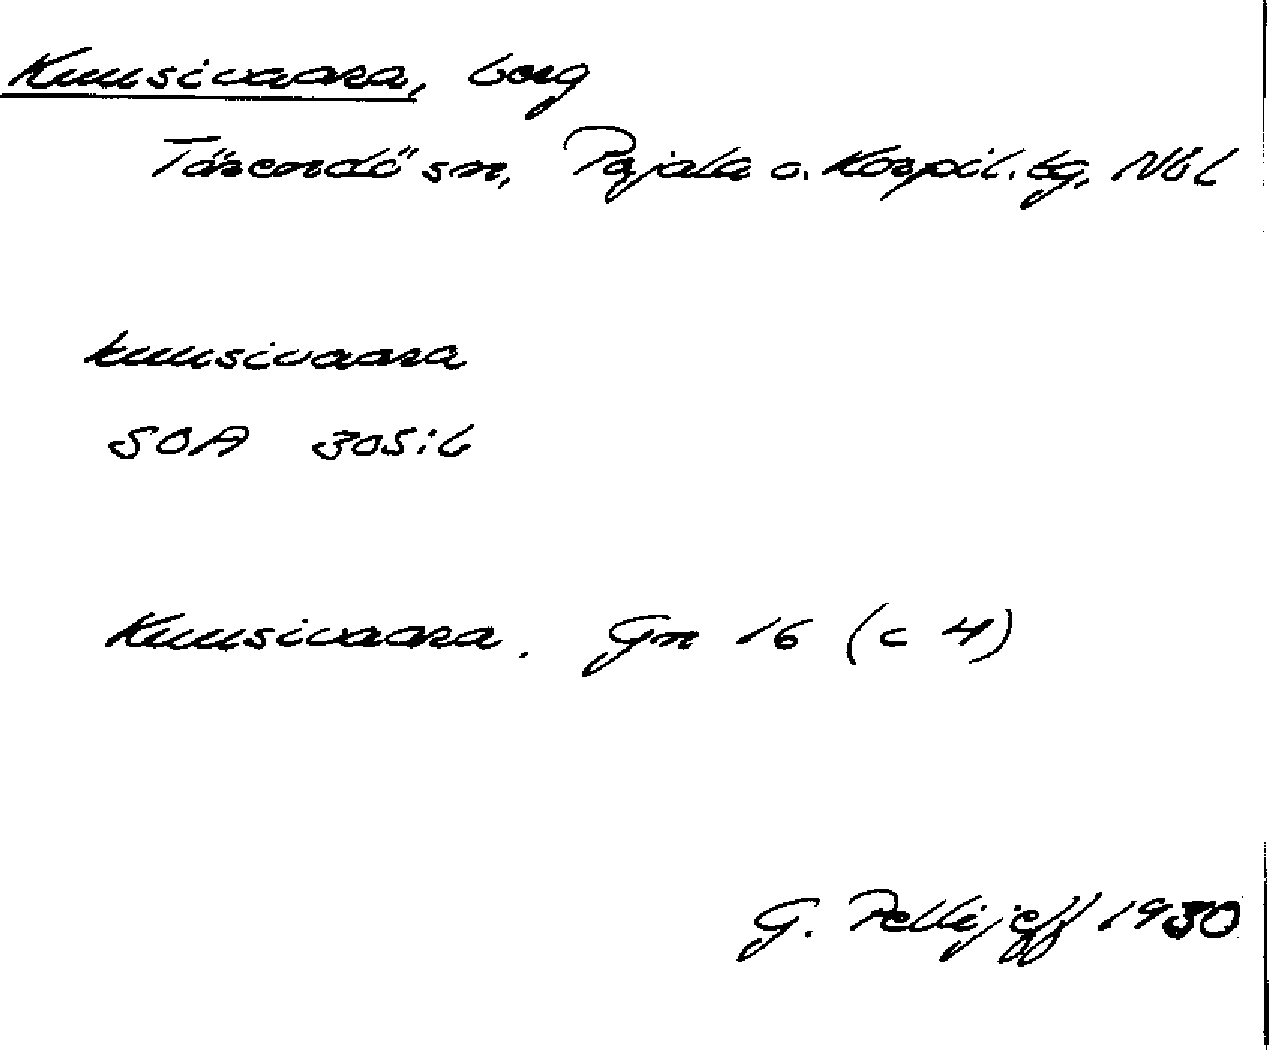 Kuusivaara, berg
Tärendö sn, Pajala o. Korpil. tg, Nbl
kuusivaara
SOA 305:6
Kuusivaara. Gn 16 (c 4)
G. Pellijeff 1930